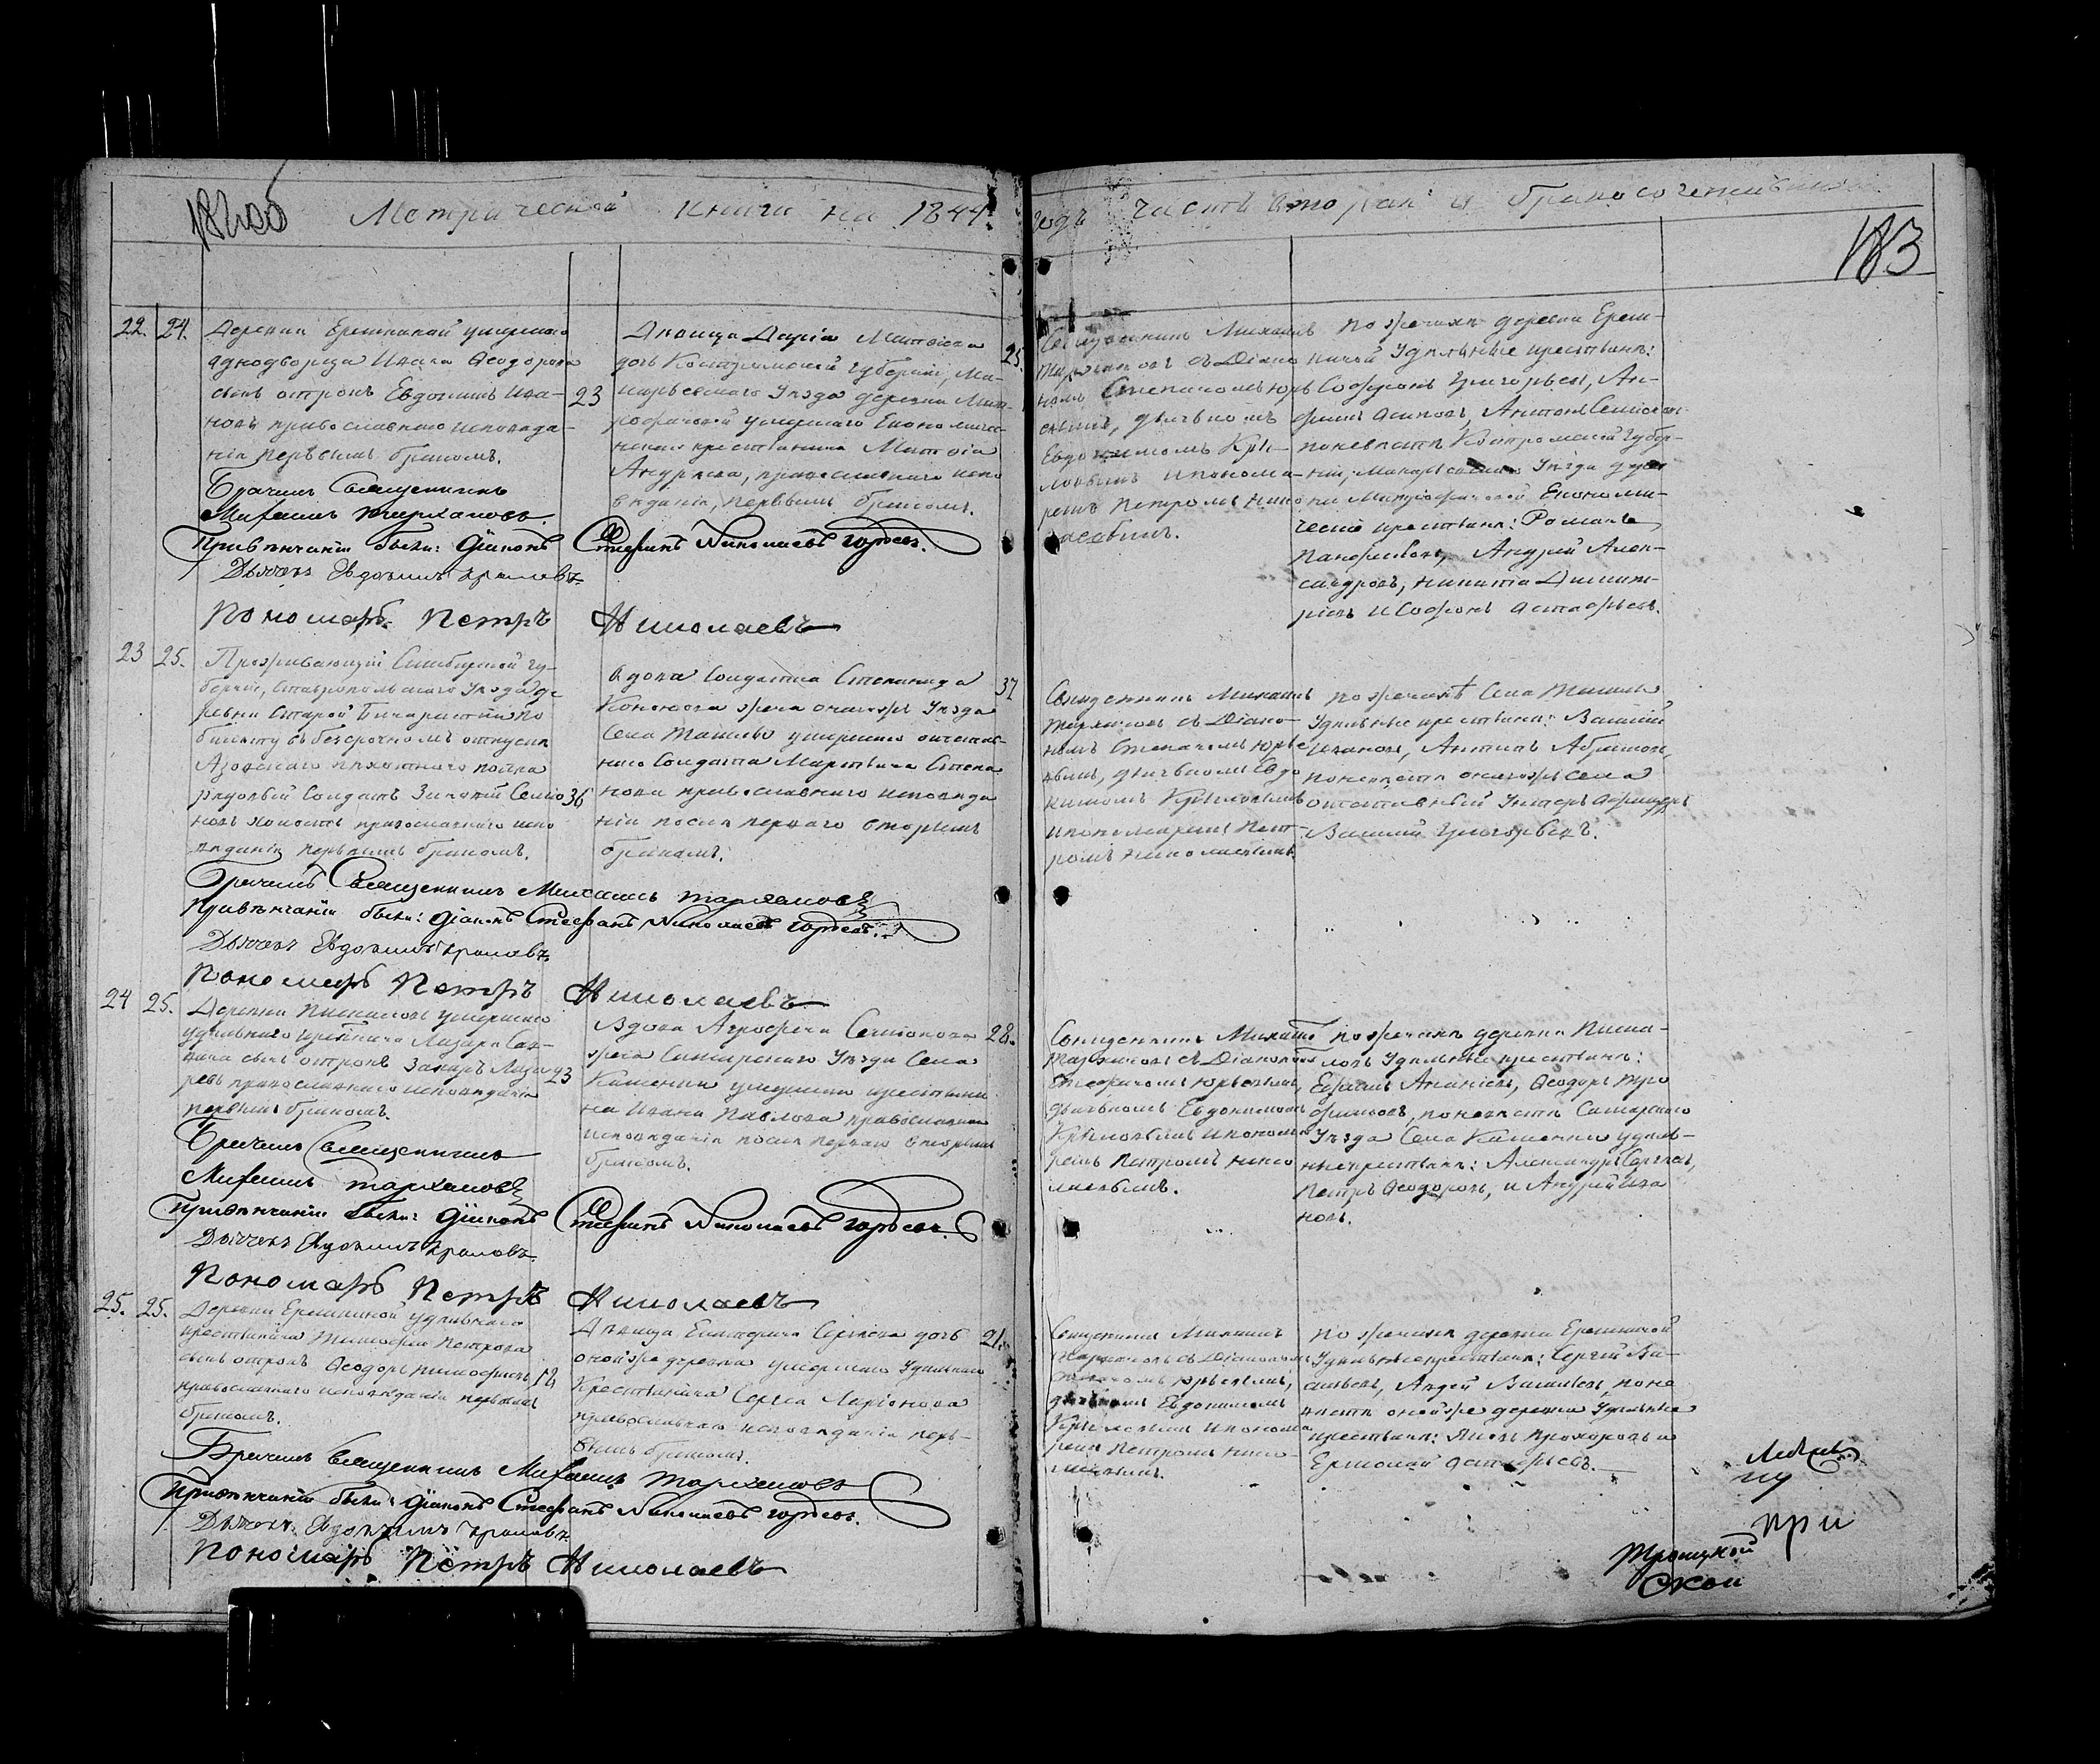 Метрической книги на 1844.
годъ часть вторая о бракосочетавшихся
183
22. 24. Деревни Ерепкиной умершаго
однодворца Ивана Ѳеодорова
сынъ отрокъ Евдокимъ Ива-
новъ православнаго исповѣда-
нія первымъ бракомъ.
23
Дѣвица Дарія Матвіева
дочь Костромской губерніи, Ма-
карьевскаго Уѣзда деревни
умершаго Економиче-
скаго крестьянина Матвія
Андреева, православнаго испо
вѣданія, первымъ бракомъ.
25.
Священникъ Михаилъ
Тархановъ съ Діако
номъ Степаномъ Юрь
евымъ, дьячкомъ
Евдокимомъ Кры-
ловымъ и понома-
ремъ Петромъ Нико
лаевымъ.
по женихѣ деревни Ереп-
киной Удѣльные крестьяне:
Софронъ Григорьевъ,
Осиповъ, Антонъ Семіонов
по невѣстѣ Костромской губер-
ніи, Макарьевскаго Уѣзда дерев
ни Економи-
ческіе крестьяне: Романъ
Панфиловъ, Андрей Алек-
сандровъ, Никита Димит-
ріевъ и Софронъ Астафьевъ.
Брачилъ Священникъ
Михаилъ Тархановъ.
При вѣнчаніи были: Діаконъ Стефанъ Николаевъ Юрьевъ.
Дьячекъ Евдокимъ Крыловъ
Пономарь Петръ Николаевъ
23 25. Проживающій Симбирской гу-
берніи, Ставропольскаго Уѣзда де
ревни Старой по
билету въ безсрочномъ отпуску
Азовскаго пѣхотнаго полка
рядовый Солдатъ Семіо
новъ холостъ православнаго испо
вѣданія первымъ бракомъ.
36
Вдова Солдатка Степанида
жена онагожъ Уѣзда
Села Ташлы умершаго отстав-
наго Солдата Мартына Степа
нова православнаго исповѣда
нія послѣ перваго вторымъ
бракомъ.
37
Священникъ Михаилъ
Тархановъ съ Діако-
номъ Степаномъ Юрье
вымъ, дьячкомъ Евдо
кимомъ Крыловымъ
и пономаремъ Пет-
ромъ Николаевымъ.
по женихѣ Села Ташлы
Удѣльные крестьяне: Василій
Ивановъ, Антипъ Абрамовъ,
по невѣстѣ онагожъ села
отставный Унтеръ Офицеръ
Василій Григорьевъ.
Брачилъ Священникъ Михаилъ Тархановъ
При вѣнчаніи были: Діаконъ Стефанъ Николаевъ Юрьевъ.
Дьячекъ Евдокимъ Крыловъ
Пономарь Петръ Николаевъ
24 25. Деревни умершаго
удѣльнаго крестьянина Лазаря
сынъ отрокъ Захаръ Лаза
ревъ православнаго исповѣданія
первымъ бракомъ.
23
Вдова Агрофена Семіонова
жена Самарскаго Уѣзда Села
Каменки умершаго крестьяни
на Ивана Павлова православнаго
исповѣданія послѣ перваго вторымъ
бракомъ.
28.
Священникъ Михаилъ
Тархановъ съ Діакономъ
Стефаномъ Юрьевымъ,
дьячкомъ Евдокимомъ
Крыловымъ и понома
ремъ Петромъ Нико
лаевымъ.
по женихѣ деревни
Удѣльные крестьяне:
Ефимъ Ананьевъ, Ѳеодоръ Тро
фимовъ, по невѣстѣ Самарскаго
Уѣзда Села Каменки удѣль-
ные крестьяне: Александръ Сергѣевъ,
Петръ Ѳеодоровъ, и Андрей Ива
новъ.
Брачилъ Священникъ
Михаилъ Тархановъ
При вѣнчаніи были: Діаконъ Стефанъ Николаевъ Юрьевъ.
Дьячекъ Евдокимъ Крыловъ
Пономарь Петръ Николаевъ
25. 25. Деревни Ерепкиной удѣльнаго
крестьянина Тимофея Петрова
сынъ отрокъ Ѳеодоръ Тимофеевъ
православнаго исповѣданія первымъ
бракомъ.
Дѣвица Екатерина Сергіева дочь
оной же деревни умершаго Удѣльнаго
Крестьянина Сергея Ларіонова
православнаго исповѣданія пер-
вымъ бракомъ.
21.
Священникъ Михаилъ
Тархановъ съ Діакономъ
Степаномъ Юрьевымъ,
дьячкомъ Евдокимомъ
Крыловымъ и понома
ремъ Петромъ Нико-
лаевымъ.
по женихѣ деревни Ерепкиной
Удѣльные крестьяне: Сергей Ва-
сильевъ, Андрей Васильевъ, по не
вѣстѣ оной же деревни Удѣльные
крестьяне: Прохоровъ и
Ермолай Астафьевъ.
Брачилъ Священникъ Михаилъ Тархановъ
При вѣнчаніи были: Діаконъ Стефанъ Николаевъ Юрьевъ.
Дьячекъ Евдокимъ Крыловъ
Пономарь Петръ Николаевъ
при
Троицкой
ской